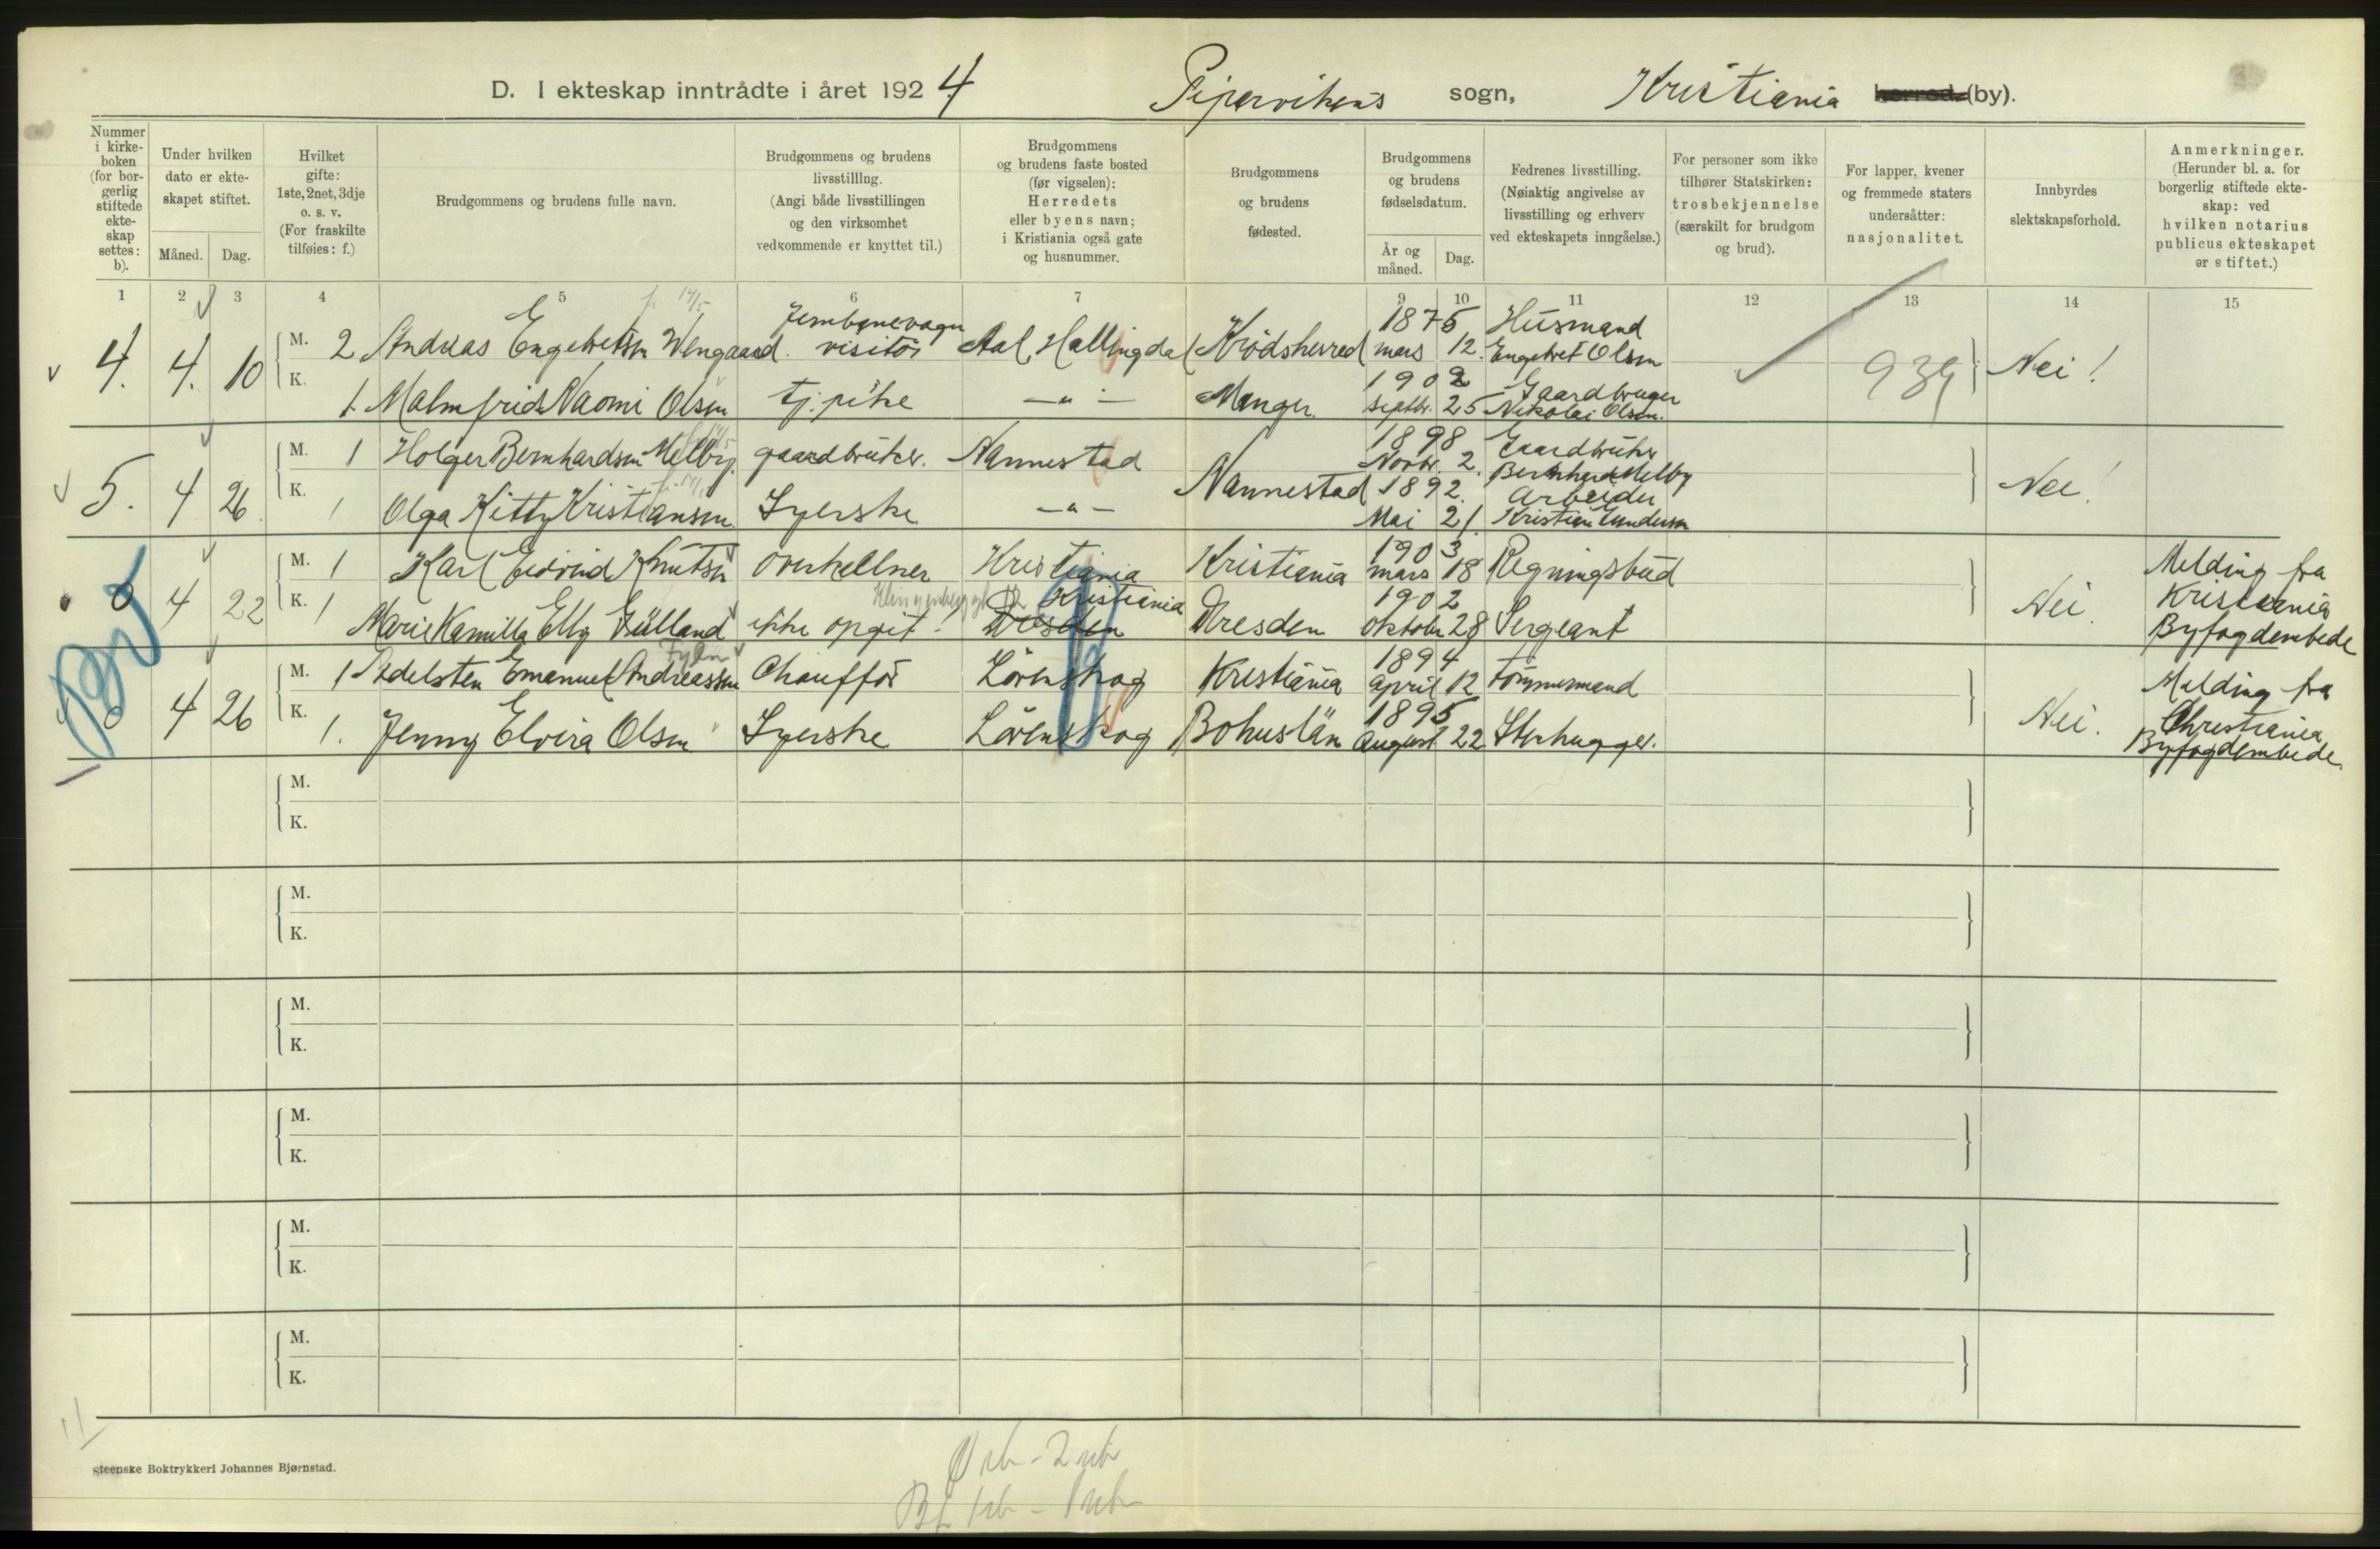 D. I ekteskap inntrådte i året 1924
Pipervikens sogn, Kristiania herred (by).
Nummer i kirke-boken (for bor-gerlig stiftede ekte-skap settes: b).
Under hvilken dato er ekte-skapet stiftet.
Måned. Dag.
Hvilket gifte: 1ste, 2net, 3dje o. s. v. (For fraskilte tilføies: f.)
Brudgommens og brudens fulle navn.
Brudgommens og brudens livsstilling. (Angi både livsstillingen og den virksomhet vedkommende er knyttet til.)
Brudgommens og brudens faste bosted (før vigselen): Herredets eller byens navn; i Kristiania også gate og husnummer.
Brudgommens og brudens fødested.
Brudgommens og brudens fødselsdatum.
År og måned. Dag.
Fedrenes livsstilling. (Nøiaktig angivelse av livsstilling og erhverv ved ekteskapets inngåelse.)
For personer som ikke tilhører Statskirken: trosbekjennelse (særskilt for brudgom og brud).
For lapper, kvener og fremmede staters undersåtter: nasjonalitet.
Innbyrdes slektskapsforhold.
Anmerkninger. (Herunder bl. a. for borgerlig stiftede ekte-skap: ved hvilken notarius publicus ekteskapet er stiftet.)
1 2 3 4 5 6 7 8 9 10 11 12 13 14 15
4. 4. 10 M. 2 Andreas Engebretsen Wengaard. Jernbanevogn visitör Aal, Hallingdal Krödsherred 1875 mars 12. Husmand Engebret Olsen 939 Nei!
K. 1. Malmfrid Naomi Olsen tj. pike — " — Manger. 1902 septbr. 25 Gaardbruger Nikolai Olsen.
5. 4 26. M. 1 Holger Bernhardsen Melby. gaardbruker. Nannestad Nannestad 1898 Novbr. 2. Gaardbruker Bernhard Melby Nei.
K. 1 Olga Kitty Kristiansen. Syerske — " — 1892. Mai 21. Arbeider Kristian Gundersen
0 4 22 M. 1 Karl Eivind Knutsen Overkellner Kristiania Kristiania 1903 mars 18 Regningsbud Nei. Melding fra Kristiania Byfogdembede
K. 1 Marie Kamilla Elly Gülland ikke opgit! Dresden Kristiania Dresden 1902 Oktober 28 Sergeant
0 4 26 M. 1 Adelsten Emanuel Andreassen Chaufför Lörenskog Kristiania 1894 April 12 Tömmermand Nei. Melding fra Christiania Byfogdembede.
K. 1. Jenny Elvira Olsen Syerske Lörenskog Bohuslän 1895 August 22 Stenhugger.
M.
K.
M.
K.
M.
K.
M.
K.
M.
K.
M.
K.
Steenske Boktrykkeri Johannes Bjørnstad.